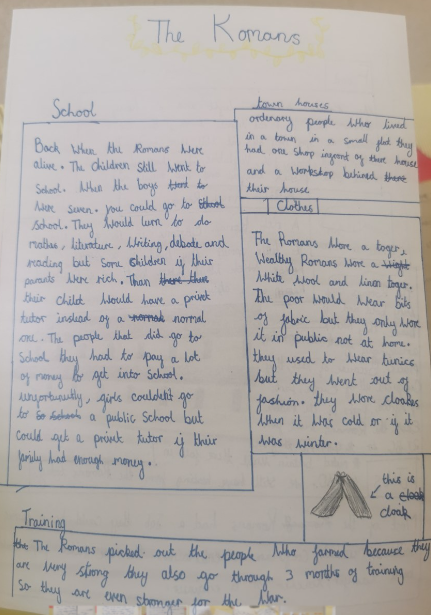 The Romans
School
Back When the Romans Were
alive. The children Still Went to
School. When the boys Went to
Were Seven. you could go to School
School. They Would lurn to do
mathes, literature, Writing, debate and
reading but Some Children if their
parents Were rich. Than there then
their Child Would have a privet
tutor instead of a normal normal
one. The people that did go to
School they had to pay a lot
of money to get into School.
unfortuently, girls couldent go
to So School a public School but
Could get a privet tutor if their
family had enough money.
town houses
ordenory people Who lived
in a town in a small glad they
had one Shop infront of there house
and a Workshop behined there
their house
Clothes
The Romans Wore a toger,
Wealthy Romans Wore a Wight
White Wool and linen toger.
The poor Would Wear bits
of fabric but they only Wore
it in public not at home.
they used to Wear tunics
but they Went out of
fashion. they Wore cloakes
When it Was cold or if it
Was winter.
this is
a cloak
cloak
Training
the The Romans picked out the people Who farmed because they
are very strong they also go through 3 months of training
So they are even stronger for the War.